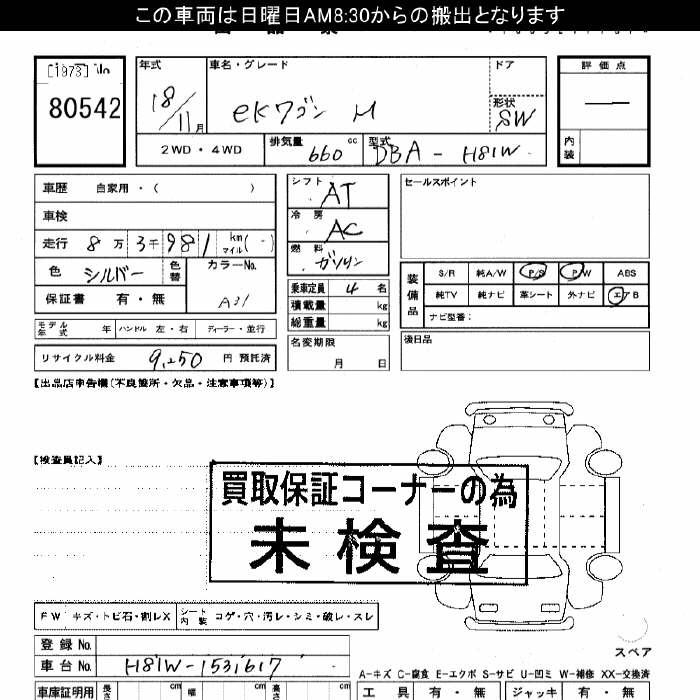 この車両は日曜日AM8:30からの搬出となります
[1973] No
80542
年式
18/11月
車名・グレード
eKワゴン M
ドア
形状
SW
評価点
内装
2WD・4WD
排気量
660 cc
型式
DBA - H81W
車歴 自家用・( )
車検
走行 8万3千981 km マイル( - )
色 シルバー 色替
カラーNo.
A31
保証書 有・無
モデル年式 年 ハンドル 左・右 ディーラー・並行
リサイクル料金 9,250 円 預託済
シフト AT
冷房 AC
燃料 ガソリン
乗車定員 4 名
積載量 kg
総重量 kg
名変期限
月 日
セールスポイント
装備品
S/R 純A/W P/S P/W ABS
純TV 純ナビ 革シート 外ナビ エアB
ナビ型番:
後日品
【出品店申告欄(不良箇所・欠品・注意事項等)】
【検査員記入】
買取保証コーナーの為
未検査
FW キズ・トビ石・割レX
シート内装 コゲ・穴・汚レ・シミ・破レ・スレ
登録No.
車台No. H81W-1531617
スペア
A-キズ C-腐食 E-エクボ S-サビ U-凹ミ W-補修 XX-交換済
車庫証明用 長さ cm 幅 cm 高さ cm
工具 有・無 ジャッキ 有・無